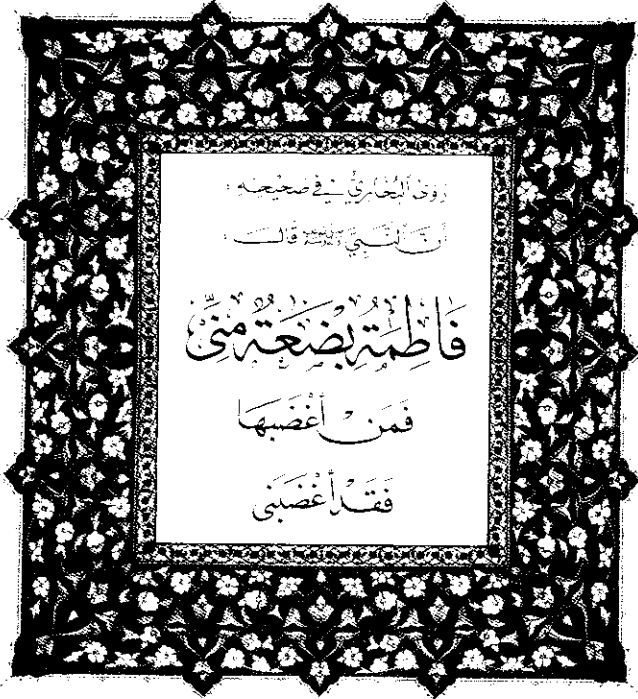 رَوَى ٱلْبُخَارِيُّ فِي صَحِيحِهِ :
أَنَّ ٱلنَّبِيَّ ﷺ قَالَ :
فَاطِمَةُ بَضْعَةٌ مِنِّي
فَمَنْ أَغْضَبَهَا
فَقَدْ أَغْضَبَنِي